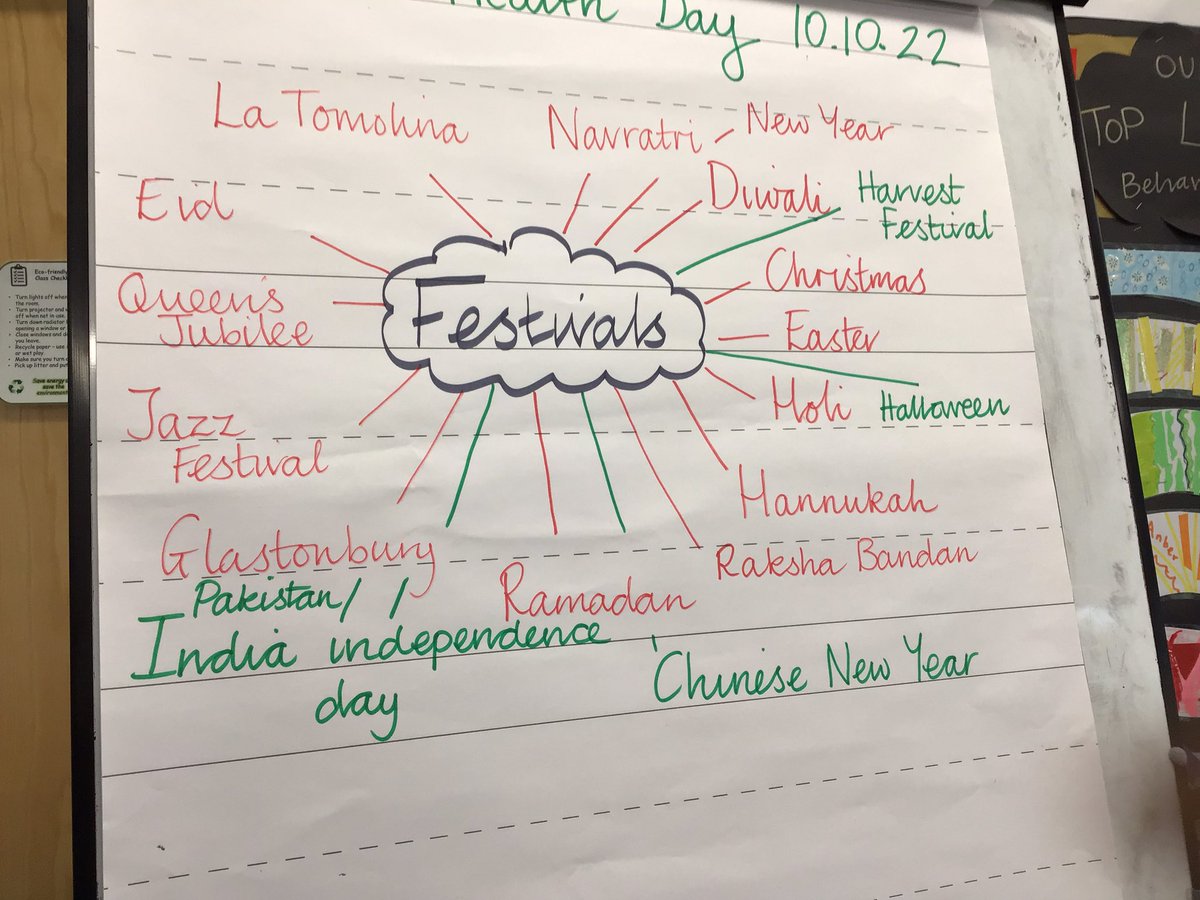 Health Day 10.10.22
La Tomolina
Navratri
New Year
Eid
Diwali
Harvest
Festival
Queen's
Jubilee
Festivals
Christmas
Easter
Holi
Halloween
Jazz
Festival
Hannukah
Glastonbury
Raksha Bandan
Ramadan
Pakistan/ /
India independence
day
Chinese New Year
OU
TOP L
Behav
Eco-friendly
Class Checkli
Turn lights off when
the room.
Turn projector and w
off when not in use.
Turn down radiator
opening a window or
Close windows and do
you leave.
Recycle paper - use
or wet play.
Make sure you turn
Pick up litter and put
Save energy
save the
environment
Amber